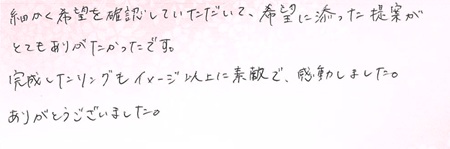 細かく希望を確認していただいて、希望に添った提案が
とてもありがたかったです。
完成したリングもイメージ以上に素敵で、感動しました。
ありがとうございました。